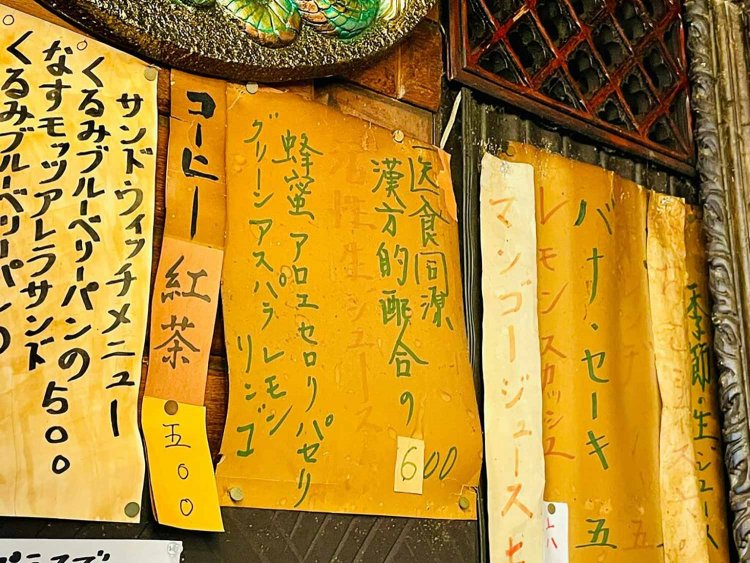 サンドウィッチメニュー
くるみブルーベリーパンの
なすモッツアレラサンド500
くるみブルーベリーパンの
コーヒー
紅茶
五〇〇
医食同源
漢方的配合の
活性生ジュース
600
蜂蜜アロエセロリパセリ
グリーンアスパラレモン
リンゴ
マンゴージュース七
レモンスカッシュ
六
バナナ・セーキ五
五
季節・生ジュース